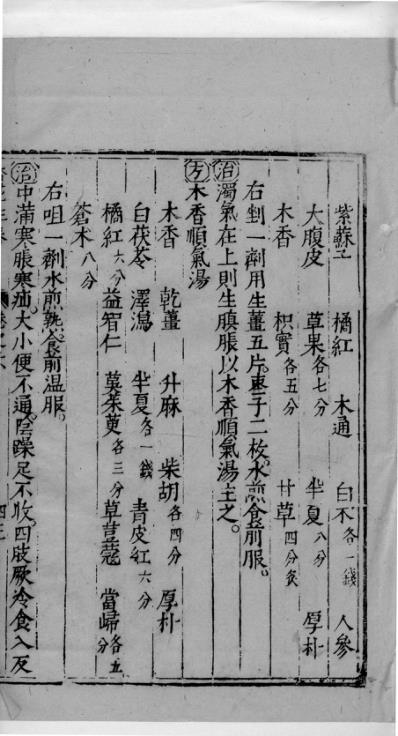 紫蘇 橘紅 木通 白朮各一錢 人參
大腹皮 草果各七分 半夏八分 厚朴
木香 枳實各五分 甘草四分炙
右剉一劑用生薑五片棗子二枚水煎食前服。
治濁氣在上則生䐜脹以木香順氣湯主之。
方木香順氣湯
木香 乾薑 升麻 柴胡各四分 厚朴
白茯苓 澤瀉 半夏各一錢 青皮紅六分
橘紅六分 益智仁 茱萸各三分 草荳蔻 當歸各五分
蒼朮八分
右咀一劑水煎熟食前温服。
治中滿寒脹寒疝。大小便不通。陰躁足不收。四肢厥冷食入反